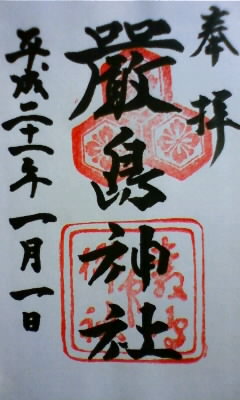 奉拝
厳島神社
平成二十一年一月一日